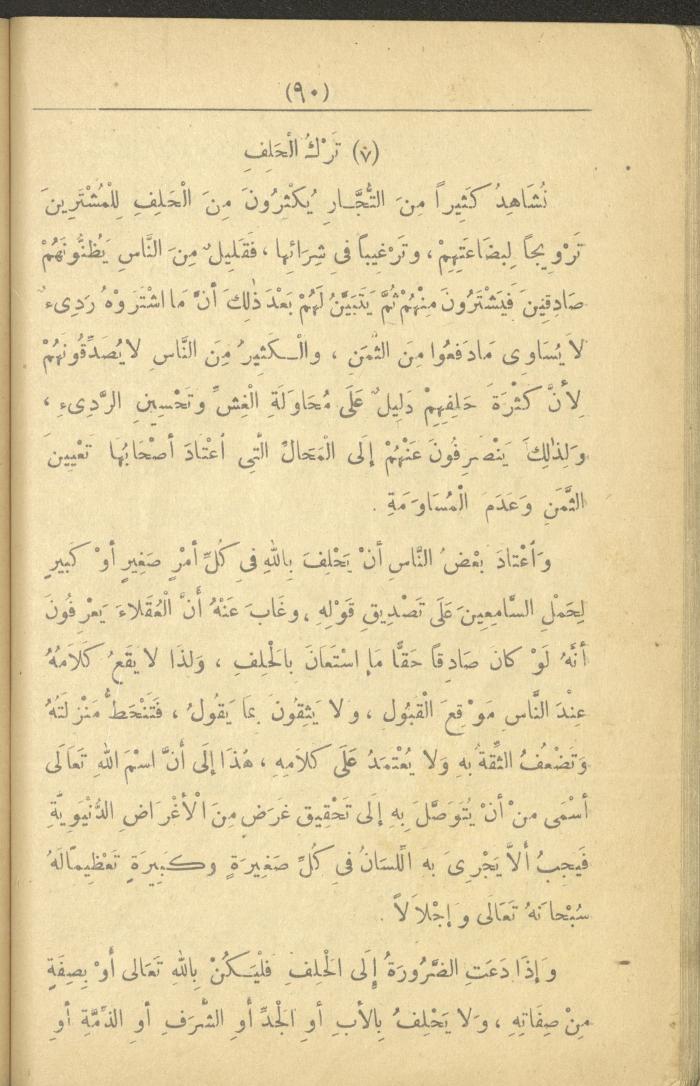 (٩٠)
(٧) تَرْكُ الْحَلِفِ
نُشَاهِدُ كَثِيراً مِنَ التُّجَّارِ يُكْثِرُونَ مِنَ الْحَلِفِ لِلْمُشْتَرِينَ
تَرْوِيجاً لِبِضَاعَتِهِمْ، وَتَرْغِيباً فِى شِرَائِهَا، فَقَلِيلٌ مِنَ النَّاسِ يَظُنُّونَهُمْ
صَادِقِينَ فَيَشْتَرُونَ مِنْهُمْ ثُمَّ يَتَبَيَّنُ لَهُمْ بَعْدَ ذٰلِكَ أَنَّ مَا اشْتَرَوْهُ رَدِىءٌ
لاَ يُسَاوِى مَا دَفَعُوا مِنَ الثَّمَنِ ، وَالْكَثِيرُ مِنَ النَّاسِ لاَ يُصَدِّقُونَهُمْ
لِأَنَّ كَثْرَةَ حَلِفِهِمْ دَلِيلٌ عَلَى مُحَاوَلَةِ الْغِشِّ وَتَحْسِينِ الرَّدِىءِ ،
وَلِذٰلِكَ يَنْصَرِفُونَ عَنْهُمْ إِلَى الْمَحَالِّ الَّتِى اُعْتَادَ أَصْحَابُهَا تَعْيِينَ
الثَّمَنِ وَعَدَمَ الْمُسَاوَمَةِ .
وَاُعْتَادَ بَعْضُ النَّاسِ أَنْ يَحْلِفَ بِاللهِ فِى كُلِّ أَمْرٍ صَغِيرٍ أَوْ كَبِيرٍ
لِحَمْلِ السَّامِعِينَ عَلَى تَصْدِيقِ قَوْلِهِ ، وَغَابَ عَنْهُ أَنَّ الْعُقَلاَءَ يَعْرِفُونَ
أَنَّهُ لَوْ كَانَ صَادِقاً حَقًّا مَا اسْتَعَانَ بِالْحَلِفِ ، وَلِذَا لاَ يَقَعُ كَلاَمُهُ
عِنْدَ النَّاسِ مَوْقِعَ الْقَبُولِ ، وَلاَ يَثِقُونَ بِمَا يَقُولُ ، فَتَنْحَطُّ مَنْزِلَتُهُ
وَتَضْعُفُ الثِّقَةُ بِهِ وَلاَ يُعْتَمَدُ عَلَى كَلاَمِهِ ، هٰذَا إِلَى أَنَّ اسْمَ اللهِ تَعَالَى
أَسْمَى مِنْ أَنْ يُتَوَصَّلَ بِهِ إِلَى تَحْقِيقِ غَرَضٍ مِنَ الْأَغْرَاضِ الدُّنْيَوِيَّةِ
فَيَجِبُ أَلاَّ يَجْرِىَ بِهِ اللِّسَانُ فِى كُلِّ صَغِيرَةٍ وَكَبِيرَةٍ تَعْظِيماً لَهُ
سُبْحَانَهُ تَعَالَى وَإِجْلاَلاً .
وَإِذَا دَعَتِ الضَّرُورَةُ إِلَى الْحَلِفِ فَلْيَكُنْ بِاللهِ تَعَالَى أَوْ بِصِفَةٍ
مِنْ صِفَاتِهِ ، وَلاَ يَحْلِفُ بِالْأَبِ أَوِ الْجَدِّ أَوِ الشَّرَفِ أَوِ الذِّمَّةِ أَوِ